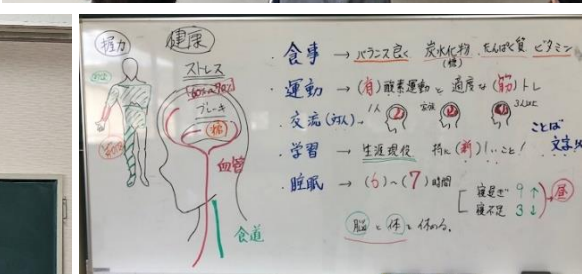 握力
健康
ストレス
60〜90%
ブレーキ
血管
食道
・食事 → バランス良く 炭水化物 たんぱく質 ビタミン
(糖)
・運動 → (有)酸素運動と適度な(筋)トレ
・交流(対人) → 1人 3人以上
・学習 → 生涯現役 特に(新)しいこと! ことば
文字
・睡眠 → (6)〜(7)時間
寝過ぎ 9↑
寝不足 3↓
昼
脳と体を休める。